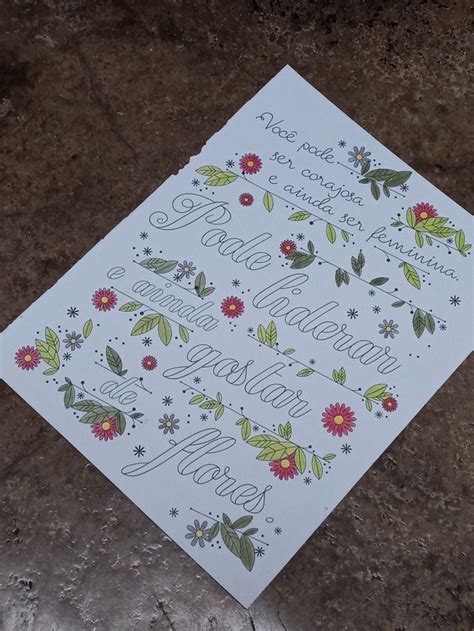 Você pode
ser corajosa
e ainda ser feminina.
Pode liderar
e ainda
gostar
de
flores.